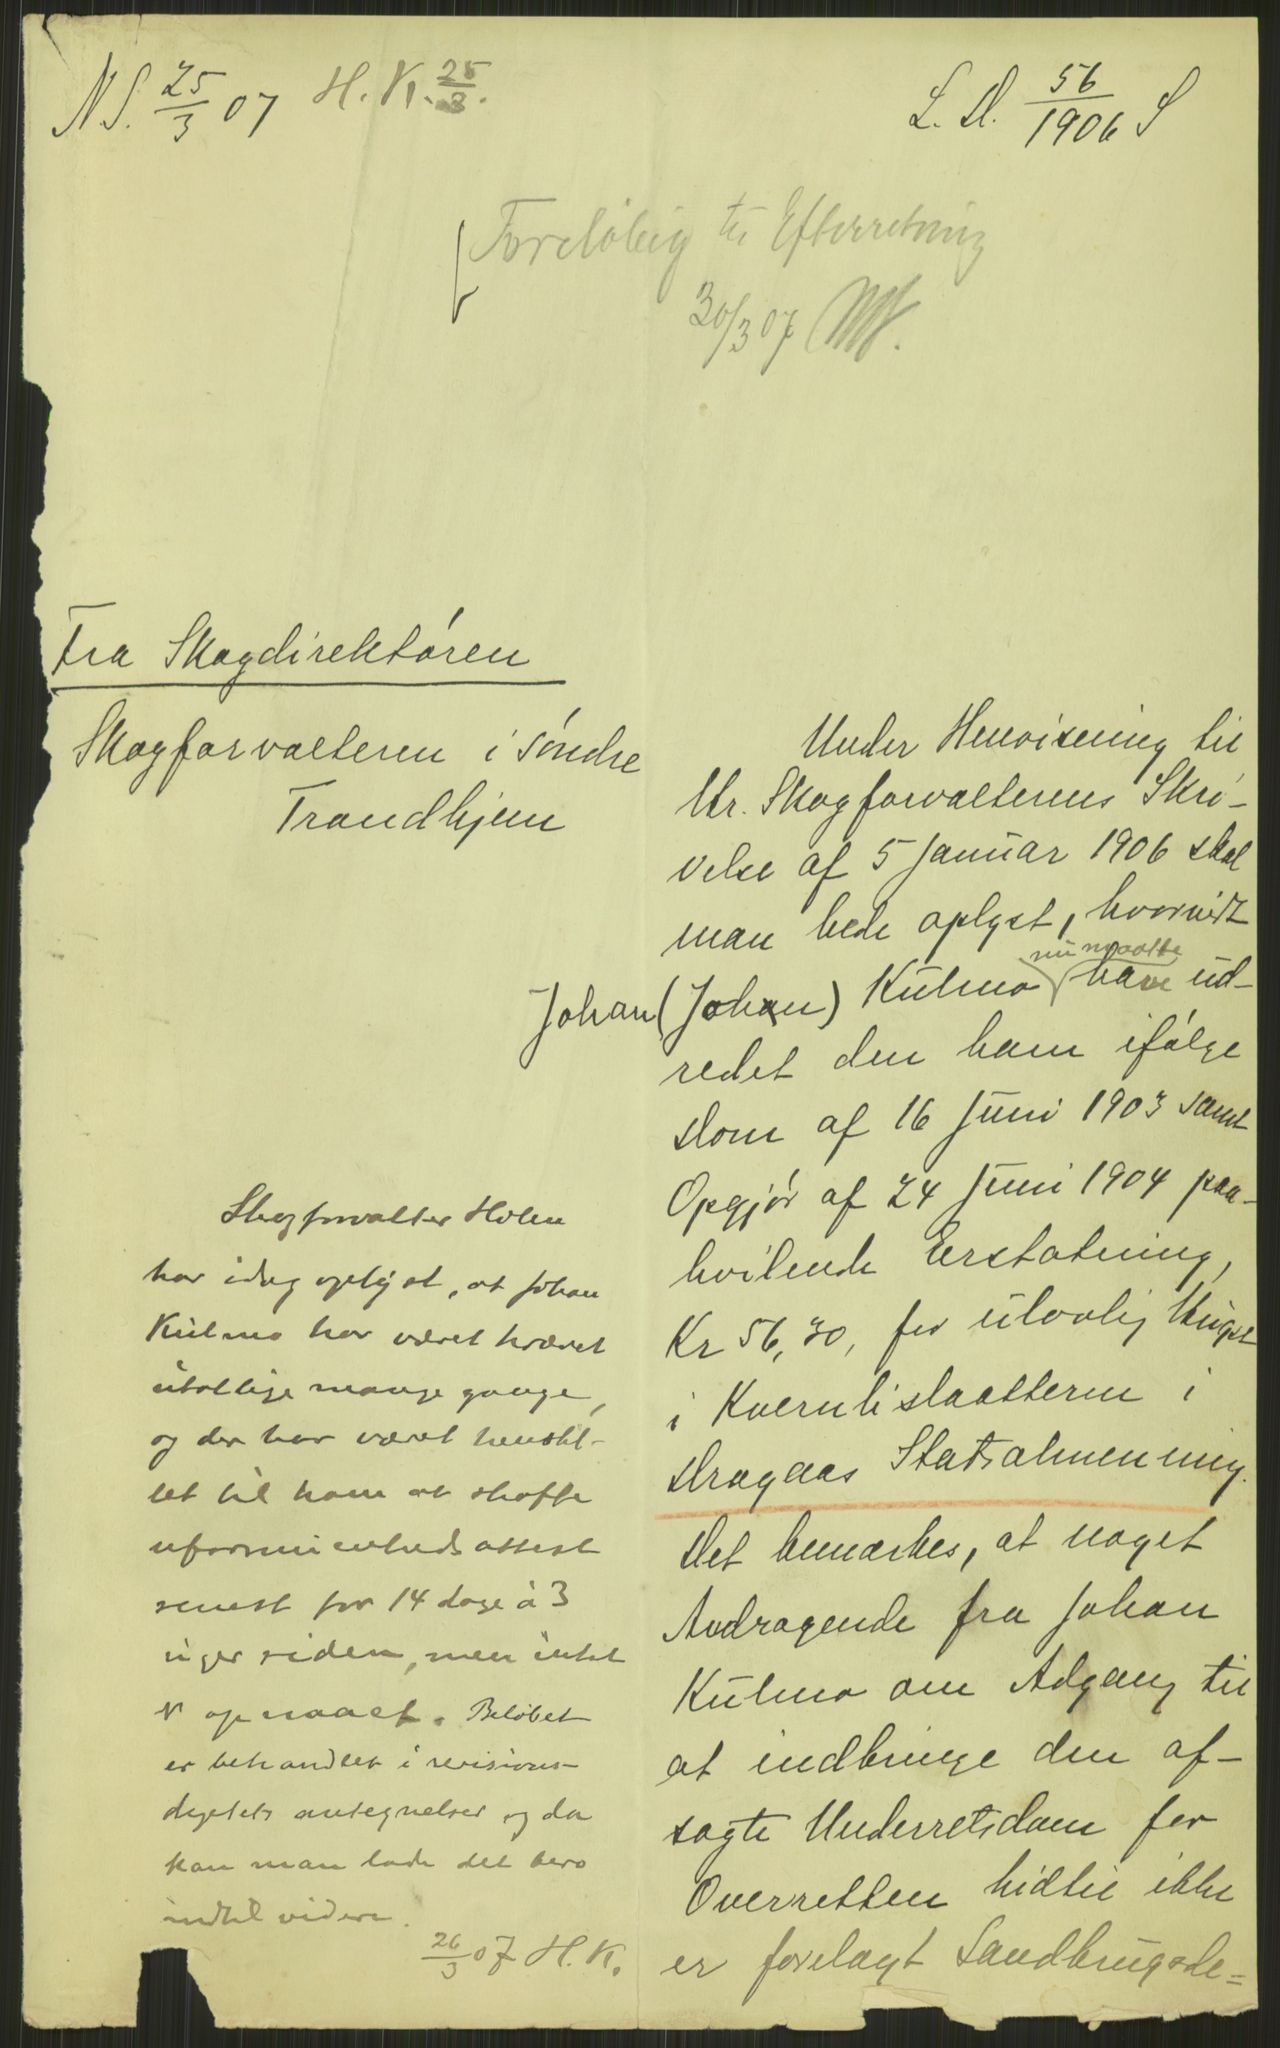 N.S. 25/3 07 H. K. 25/3.
L. D. 56/1906 S
Foreløbig til Efterretning
30/3 07
Fra Skogdirektøren
Skogforvalteren i Søndre
Trondhjem
Under Henvisning til
Hr. Skogforvalterens Skri-
velse af 5 Januar 1906 skal
man bede oplyst, hvorvidt
Johan (Johan) Kulmo nu maatte have ud-
redet den ham ifølge
Dom af 16 Juni 1903 samt
Opgjør af 24 Juni 1904 paa-
hvilende Erstatning,
Kr 56,30, for ulovlig Hugst
i Kvernlislaatteren i
Dragaas Statsalmenning.
Det bemærkes, at noget
Andragende fra Johan
Kulmo om Adgang til
at indbringe den af-
sagte Underretsdom for
Overretten hidtil ikke
er forelagt Landbrugsde=
Skogforvalter Holen
har idag oplyst, at Johan
Kulmo har været krævet
utallige mange gange,
og der har været henstil-
let til ham at skaffe
uformuenhedsattest
senest for 14 dage à 3
uger siden, men intet
er opnaaet. Beløbet
er behandlet i revisions-
dep[tets] antegnelser og da
kan man lade det bero
indtil videre.
26/3 07 H. K.